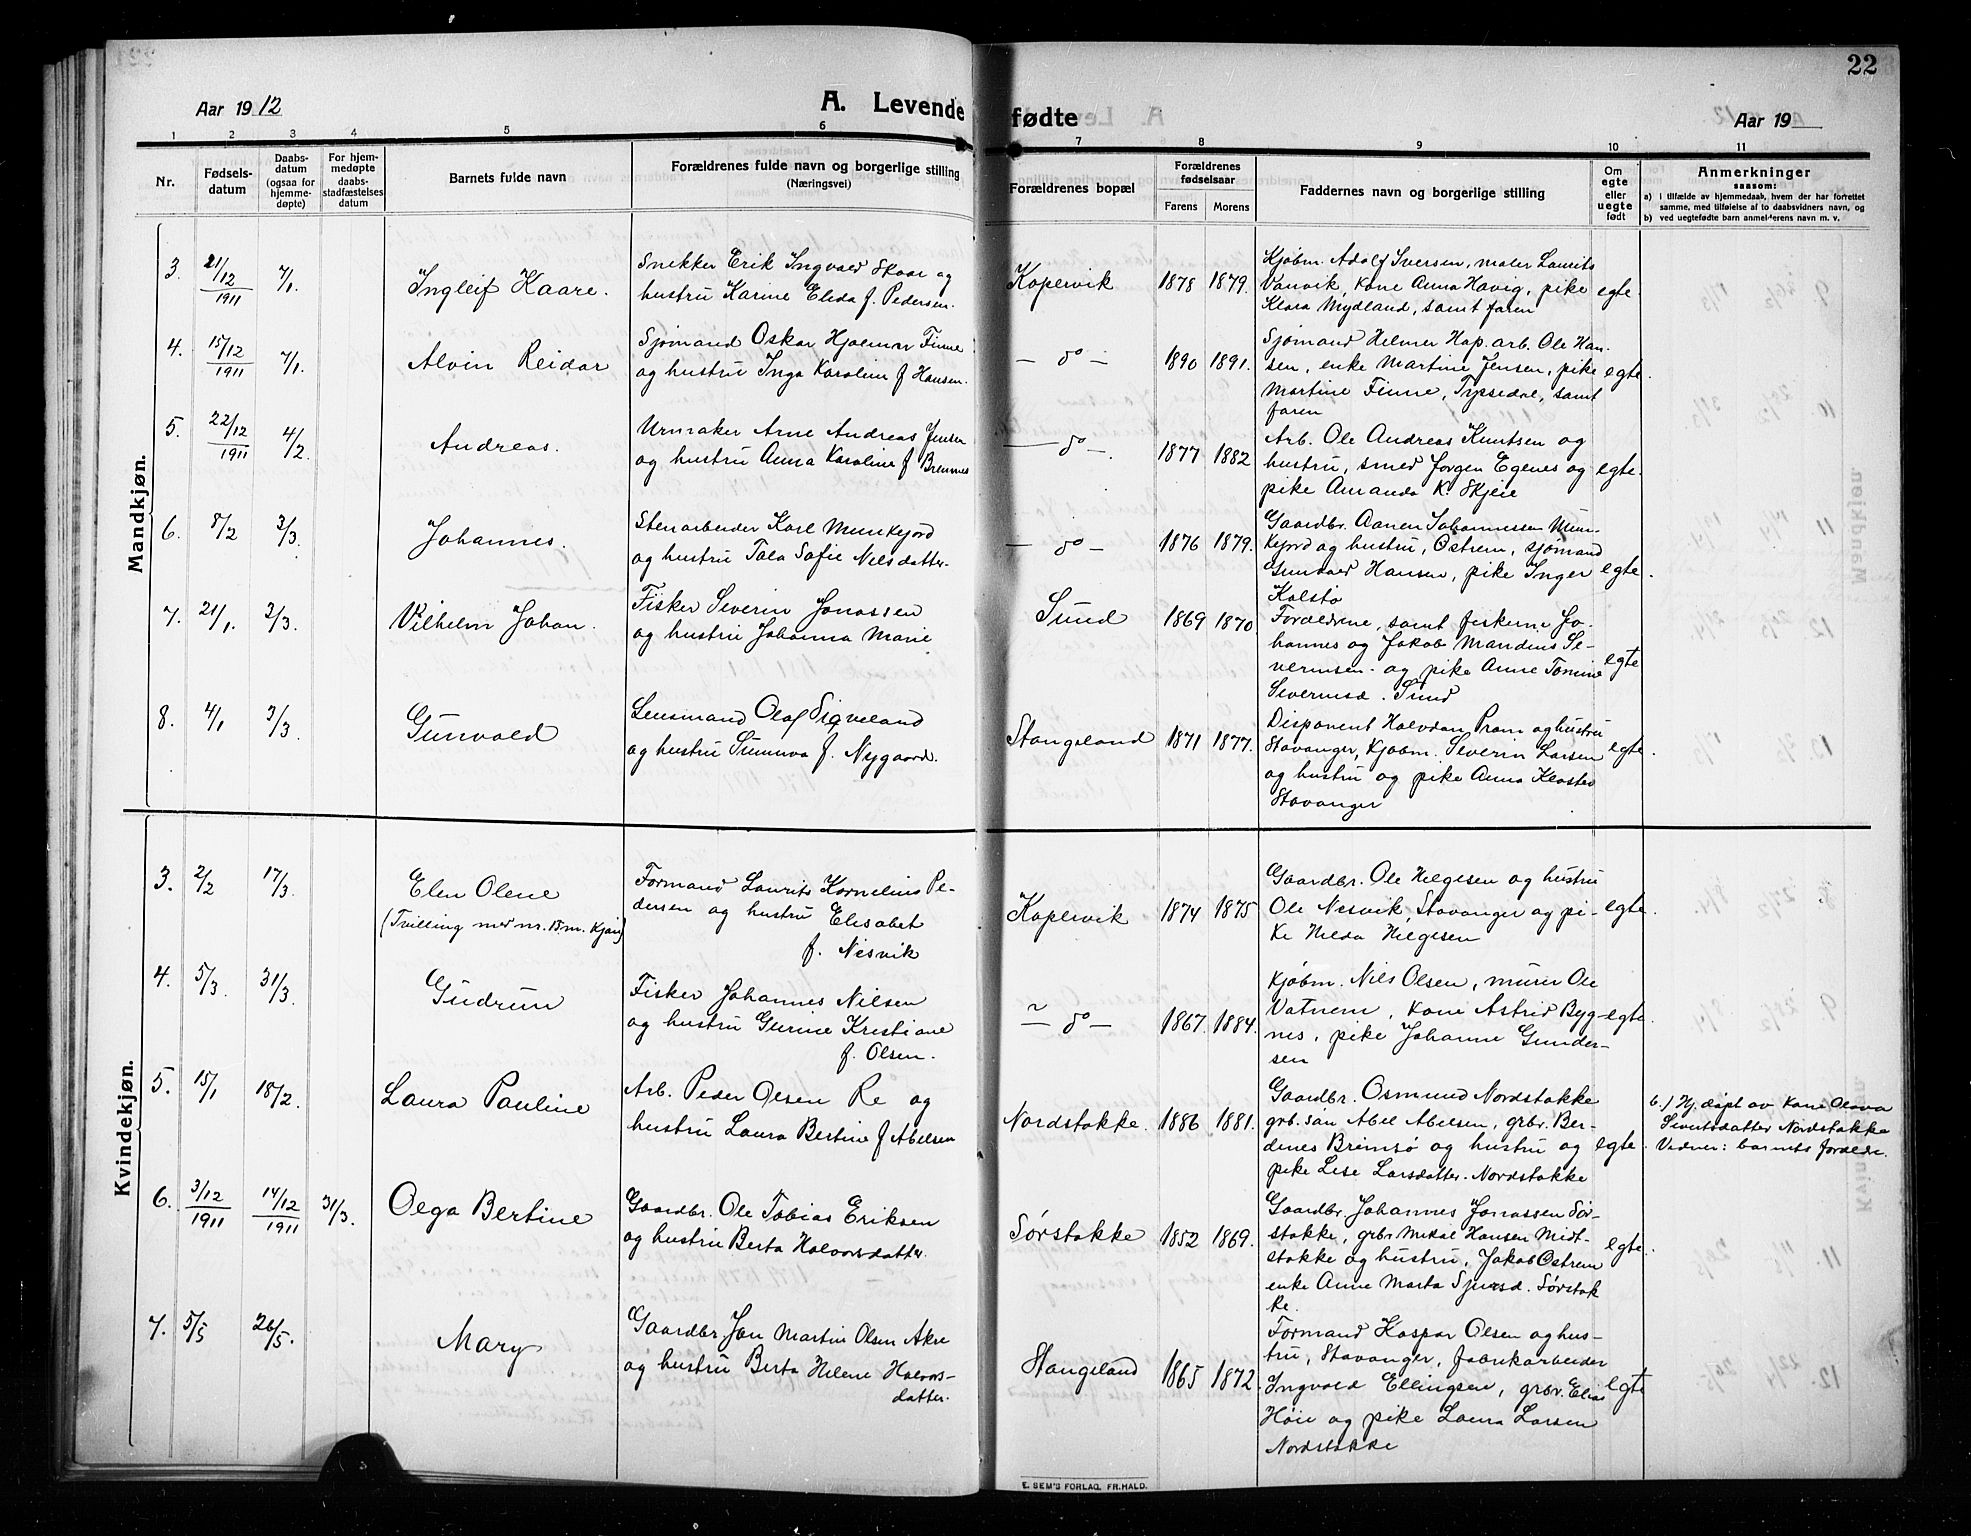 22
Aar 1912
A. Levende
fødte
Aar 19
1 2 3 4 5 6 7 8 9 10 11
Nr.
Fødsels-
datum
Daabs-
datum
(ogsaa for
hjemme-
døpte)
For hjem-
medøpte
daabs-
stadfæstelses
datum
Barnets fulde navn
Forældrenes fulde navn og borgerlige stilling
(Næringsvei)
Forældrenes bopæl
Forældrenes
fødselsaar
Farens Morens
Faddernes navn og borgerlige stilling
Om
egte
eller
uegte
født
Anmerkninger
saasom:
a) i tilfælde av hjemmedaab, hvem der har forrettet
samme, med tilføielse af to daabsvidners navn, og
b) ved uegtefødte barn anmelderens navn m. v.
Mandkjøn.
3. 21/12 1911 7/1. Ingleif Kaare.
Snekker Erik Ingvald Skaar og
hustru Karine Elida f. Pedersen.
Kopervik 1878 1879.
Kjøbm. Adolf Iversen, maler Laurits
Vanvik, kone Anna Havig, pike
Klara Mydland, samt faren
egte.
4. 15/12 1911 7/1. Alvin Reidar
Sjømand Oskar Hjalmar Finne
og hustru Inga Karoline f Hansen.
— do — 1890 1891.
Sjømand Helmer Hop. arb. Ole Han-
sen, enke Martine Jensen, pike
Martine Finne, Tyssedal, samt
faren
egte.
5. 22/12 1911 4/2. Andreas.
Urmaker Arne Andreas Jensen
og hustru Anna Karoline f Bremnes
— do —. 1877 1882
Arb. Ole Andreas Knutsen og
hustru, smed Jørgen Egenes og
pike Amanda K. Skjeie
egte.
6. 8/2 3/3. Johannes.
Stenarbeider Karl Munkejord
og hustru Tala Sofie Nilsdatter.
— do — 1876 1879.
Gaardbr. Aanen Johannessen Mun-
kejord og hustru, Østrem, sjømand
Gunvald Hansen, pike Inger
Kolstø
egte.
7. 21/1. 3/3. Vilhelm Johan.
Fisker Severin Jonassen
og hustru Johanna Marie
Sund 1869 1870.
Forældrene, samt fiskerne Jo-
hannes og Jakob Mandius Se-
verinsen. og pike Anne Tomine
Severinsd. Sund
egte
8. 4/1 3/3. Gunvald
Lensmand Olaf Sigveland
og hustru Sunnva f. Nygaard.
Stangeland 1871 1877.
Disponent Halvdan Pram og hustru
Stavanger, Kjøbm. Severin Larsen
og hustru og pike Anna Kloster
Stavanger
egte.
Kvindekjøn.
3. 2/2 17/3. Elen Olene
(Tvilling med nr. 15 m. Kjøn)
Formand Laurits Kornelius Pe-
dersen og hustru Elisabet
f. Nesvik
Kopervik 1874 1875
Gaardbr. Ole Helgesen og hustru
Ole Nesvik, Stavanger og pi-
ke Hilda Helgesen
egte.
4. 5/3. 31/3. Gudrun
Fisker Johannes Nilsen
og hustru Gurine Kristiane
f. Olsen.
— do — 1867. 1884.
Kjøbm. Nils Olsen, murer Ole
Vatnem, kone Astrid Byg-
nes, pike Johanne Gunder-
sen
egte.
5. 15/1 18/2. Laura Pauline
Arb. Peder Olsen Re og
hustru Laura Bertine f Abelsen
Nordstokke. 1886 1881.
Gaardbr. Osmund Nordstokke
grb. søn Abel Abelsen, grbr. Ber-
denes Brimsø og hustru og
pike Lise Larsdatter. Nordstokke
egte.
6.) Hj. døpt av kone Olava
Sivertsdatter Nordstokke
Vidner: barnets foreldr.
6. 3/12 1911 14/12 1911 31/3. Olga Bertine
Gaardbr. Ole Tobias Eriksen
og hustru Berta Halvorsdatter.
Sørstokke 1852 1869.
Gaardbr. Johannes Jonassen Sør-
stokke, grbr. Mikal Hansen Midt-
stokke og hustru, Jakob Østrem
enke Anne Marta Sjursd. Sørstok
ke.
egte.
7. 5/5 26/5. Mary
Gaardbr. Jon Martin Olsen Akre
og hustru Berta Helene Halvors-
datter.
Stangeland 1865 1872.
Formand Kaspar Olsen og hus-
tru, Stavanger, fabrikarbeider
Ingvald Ellingsen, grbr. Elias
Høie og pike Laura Larsen
Nordstokke
egte
E. SEM'S FORLAG. FR.HALD.